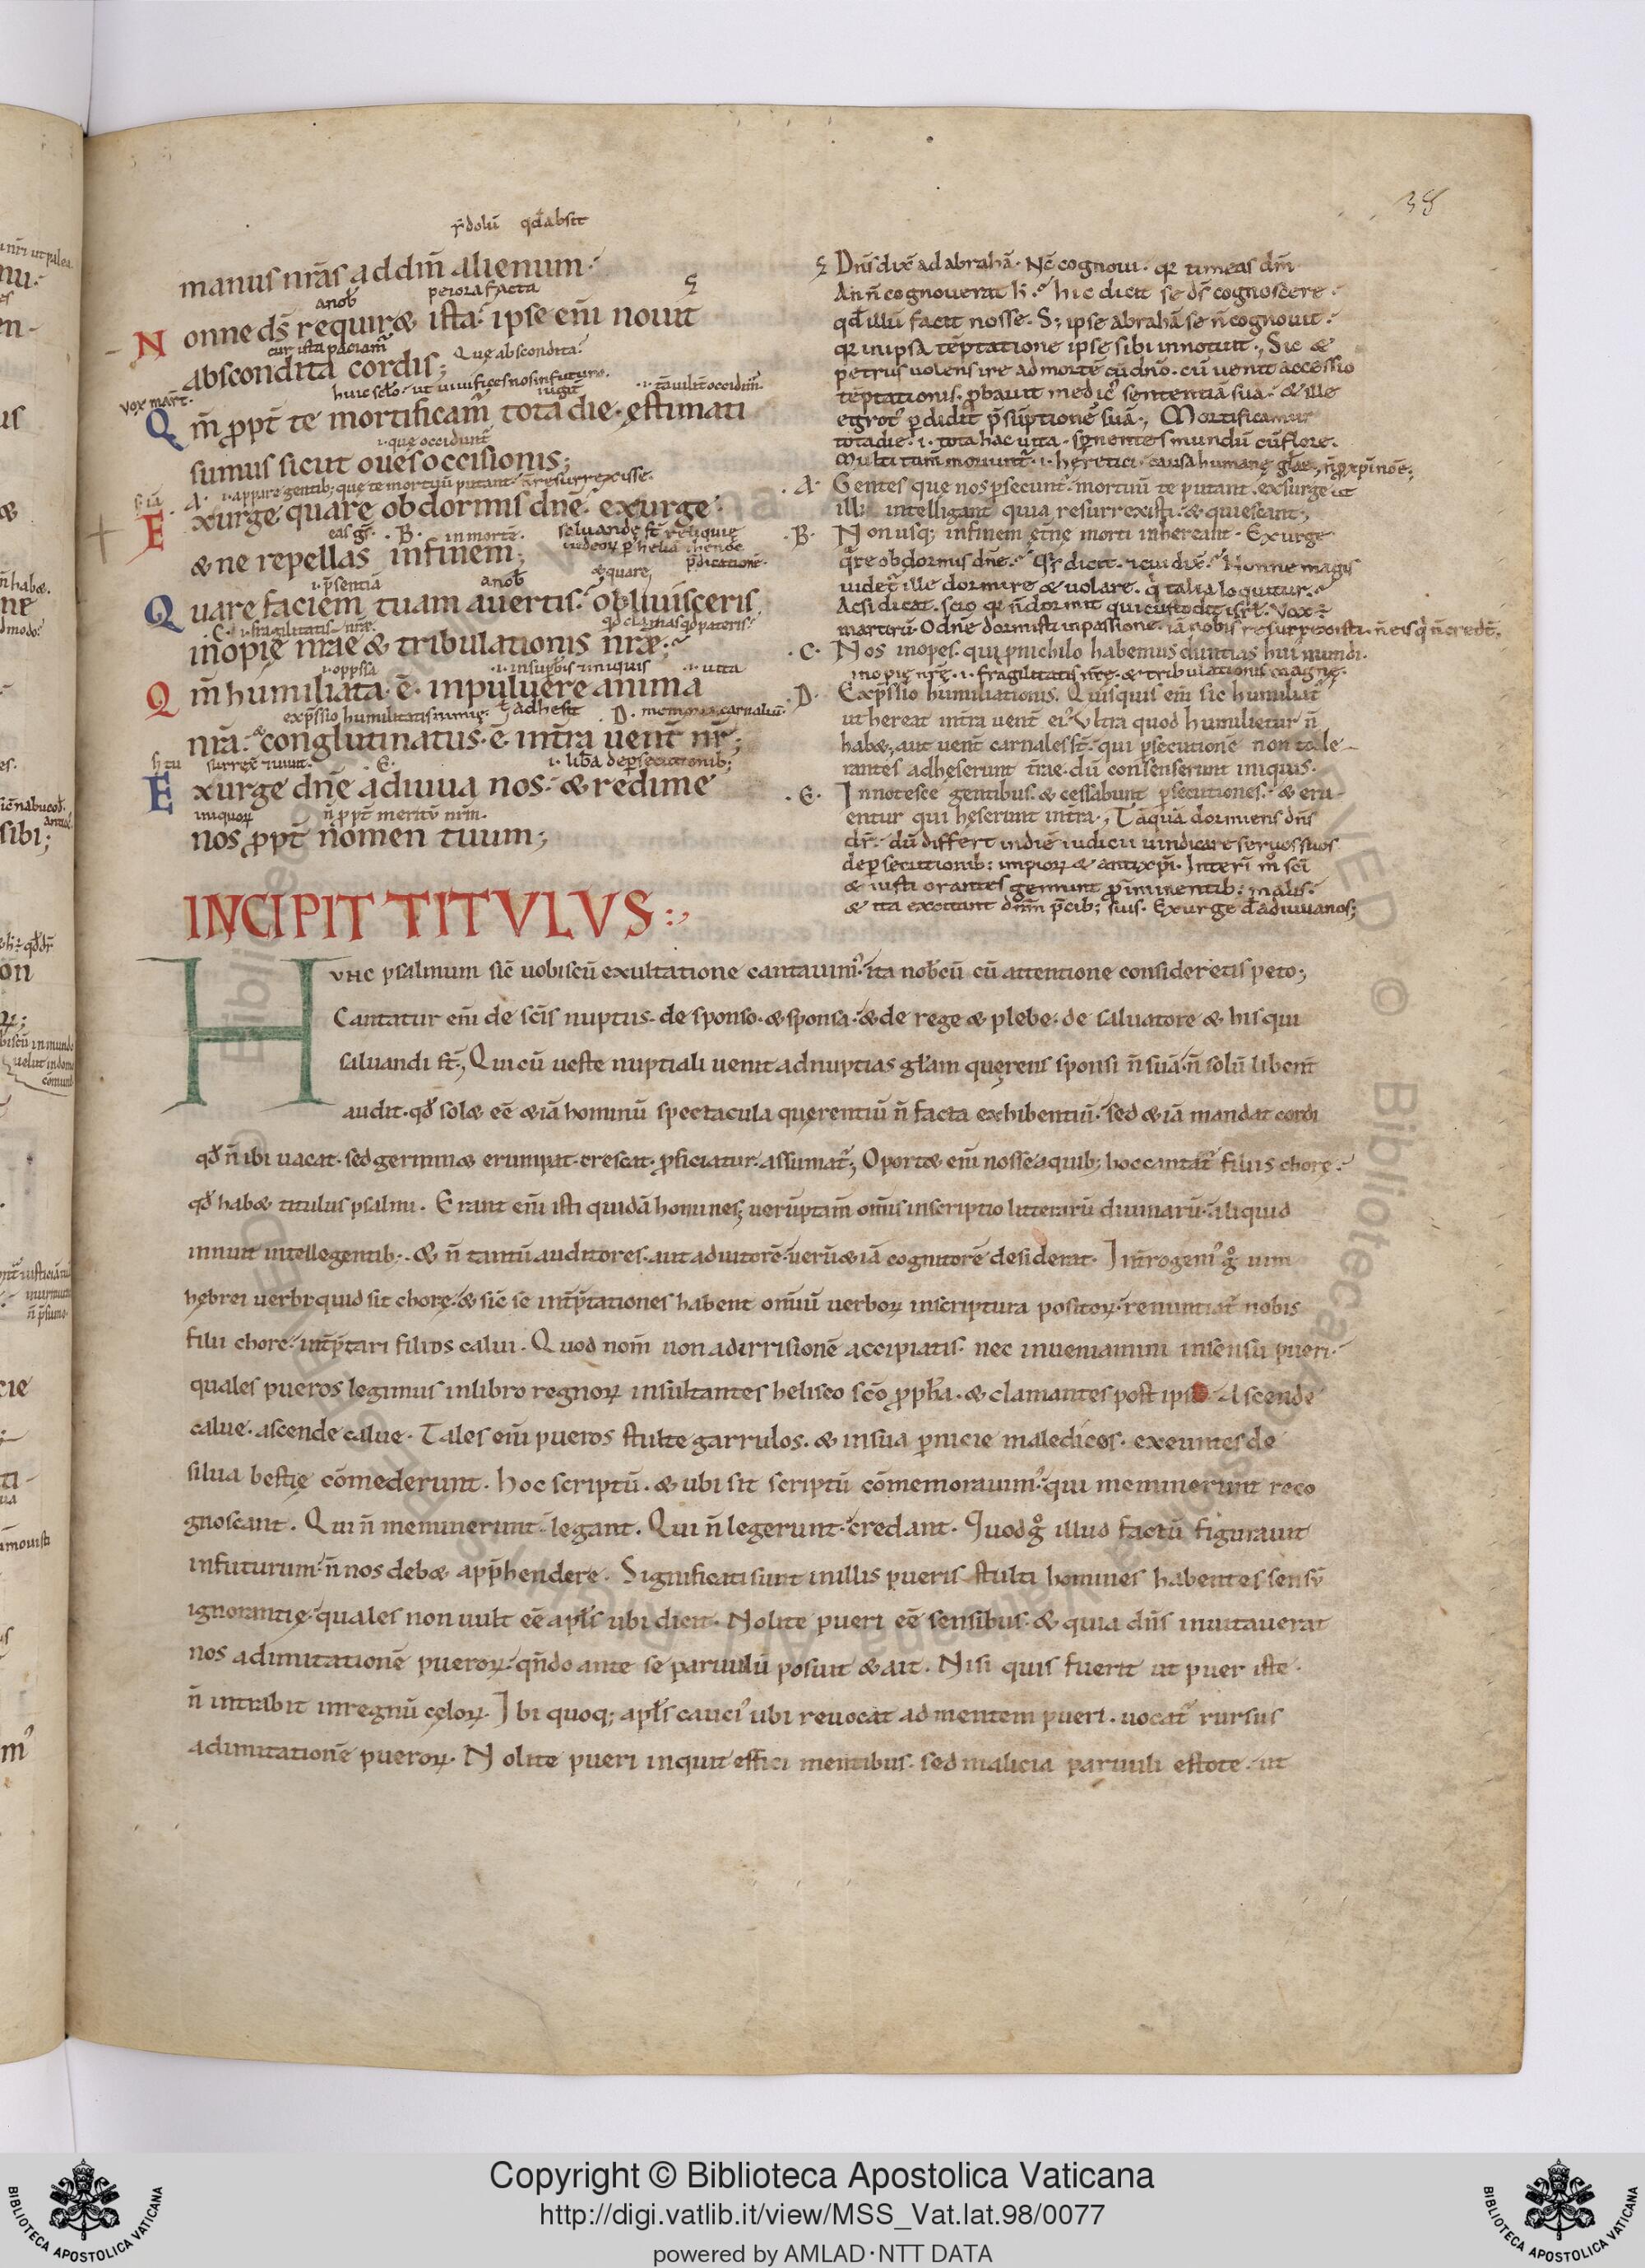 38
ꝑ dolū qđ absit
manus nr̄as ad dm̄ alienum.
a nob̄ peiora facta
Nonne ds̄ requir& ista? ipse eni̅ nouit
cur ista paciam̄ Que abscondita?
abscondita cordis;
huic sclo. ut uiuifices nos in futuro. iugit̄ .i. tā uilit̄ occidim̄
vox mart̄.
Qm̄ ꝓpt̄ te mortificam̄ tota die. ęstimati
.i. que occidunt̄
sumus sicut oues occisionis;
A. .i. appare gentib; que te mortuū putant. n̄ resurrexisse.
Exurge quare obdormis dn̄e. exurge.
eas gs̄. .B. in morte. saluande st̄ reliquię
iudeoꝝ ꝑ heliā. henoc p̄dicatione.
& ne repellas in finem;
.i. p̄sentiā a nob̄ & quare
Quare faciem tuam auertis? obliuisceris
C. .i. fragilitatis nr̄ae.
inopię nr̄ae & tribulationis nr̄ae;
.i. opp̄ssa .i. in supbis & iniquis .i. uita
Qm̄ humiliata. ē. in puluere anima
exp̄ssio humilitatis nimię. adhesit D. memoria carnaliū.
nr̄a. conglutinatus. ē in tr̄a uent̄ nr̄;
surrex̄ & uiuit. .E. .i. lib̄a de ꝑsecutionib;
Exurge dn̄e adiuua nos. & redime
iniquoꝝ n̄ ꝓpt̄ meritū nr̄m.
nos ꝓpt̄ nomen tuum;
Dn̄s dix̄ ad abrahā. Nc̄ cognoui. qr timeas dm̄.
An n̄ cognouerat h̄? hic dicit se ds̄ cognoscere.
qd̄ illū facit nosse. S; ipse abrahā se n̄ cognouit.
qr in ipsa tēptatione ipse sibi innotuit., Sic &
petrus uolens ire ad mortē cū dn̄o. cū uenit accessio
tēptationis. ꝓbauit medicꝰ sententiā suā. & ille
egrotꝰ ꝑdidit p̄sūptionē suā., Mortificamur
tota die. i. tota hac uita. spnentes mundū cū flore.
Multi tam̄ moriunt̄. i. heretici. causa humanę gl̄ae, n̄ ꝓ xp̄i noe;
.A. Gentes que nos ꝑsecunt̄. mortuū te putant. exsurge ut
illi intelligant quia resurrexisti. & quiescant.,
.B. Non usq; in finem ętne morti inhereant. Exurge
q̄re obdormis dn̄e? Qs̄ dicit. & cui dix̄? Nonne magis
uidet̄ ille dormire & uolare. q̄ talia loquitur?
Acsi dicat. scio qr n̄ dormit qui custodit isr̄l. Vox
martirū. O dn̄e dormisti in passione. iā nobis resurrexisti. n̄ eis q̄ n̄ credt̄.
.C. Nos inopes. qui ꝓ nichilo habemus diuitias hui mundi.
inopię nr̄ę. i. fragilitatis nr̄ę. & tribulationis magnę.
.D. Exp̄ssio humiliationis. Quisquis eni̅ sic humiliat̄
ut hereat in tr̄a uent̄ eiꝰ. Vltra quod humilietur n̄
hab&, aut uent̄ carnales st̄. qui ꝑsecutionē non tole-
rantes adheserunt tr̄ae. dū consenserunt iniquis.
.E. Innotesce gentibus. & cessabunt ꝑsecutiones. & eru-
entur qui heserunt in tr̄a., Tāquā dormiens dn̄s
dr̄. dū differt in diē iudicii uindicare seruos suos
de ꝑsecutionib: impioꝝ & antixp̄i. Interī m̄ sc̄i
& iusti orantes gemunt ꝓ iminentib: malis.
& ita excitant dnm̄ p̄cib; suis. Exurge d̄ adiuua nos;
INCIPIT TITVLVS:,
Hvnc psalmum sic̄ uobiscū exultatione cantauimꝰ. ita nob̄cū cū attentione consideretis peto;
Cantatur eni̅ de sc̄is nuptiis. de sponso. & sponsa. & de rege & plebe. de saluatore & his qui
saluandi st̄., Qui cū ueste nuptiali uenit ad nuptias gl̄am querens sponsi n̄ suā. n̄ solū libent̄
audit. qđ sol& eē & iā hominū spectacula querentiū n̄ facta exhibentiū. sed & iā mandat cordi
qđ n̄ ibi uacat. sed germin& erumpat. crescat. ꝓficiatur. assumat̄., Oport& eni̅ nosse a quib; hoc cantat̄ filiis chore.
qđ hab& titulus psalmi. Erant eni̅ isti quidā homines, uerūptam̄ om̄is inscriptio litterarū diuinarū. aliquid
innuit intellegentib;. & n̄ tantū auditores. aut aduitorē. uerū & iā cognitorē desiderat. Int̄rogemꝰ g̊ uim
hebrei uerbi. quid sit chore. & sic̄ se int̄p̄tationes habent om̄iū uerboꝝ in scriptura positoꝝ. renuntiat̄ nobis
filii chore. int̄p̄tari filios calui. Quod nom̄ non ad irrisionē accipiatis. nec inueniamini in sensu pueri.
quales pueros legimus in libro regnoꝝ insultantes heliseo sc̄o ꝓph̄a. & clamantes post ipsū. Ascende
calue. ascende calue. Tales eni̅ pueros stulte garrulos. & in sua ꝑnicie maledicos. exeuntes de
silua bestię cōmederunt. hoc scriptū. & ubi sit scriptū cōmemorauimꝰ. qui meminerunt reco
gnoscant. Qui n̄ meminerunt. legant. Qui n̄ legerunt. credant. Quod g̊ illud factū figurauit
in futurum. n̄ nos deb& app̄hendere. Significati sunt in illis pueris stulti homines habentes sensū
ignorantię. quales non uult eē apl̄s ubi dicit. Nolite pueri eē sensibus. & quia dn̄s inuitauerat
nos ad imitationē pueroꝝ. qn̄do ante se paruulū posuit & ait. Nisi quis fuerit ut puer iste.
n̄ intrabit in regnū cęloꝝ. Ibi quoq; apl̄s cauciꝰ ubi reuocat ad mentem pueri. uocat̄ rursus
ad imitationē pueroꝝ. Nolite pueri inquit effici mentibus. sed malicia paruuli estote. ut
Copyright © Biblioteca Apostolica Vaticana
http://digi.vatlib.it/view/MSS_Vat.lat.98/0077
powered by AMLAD·NTT DATA
BIBLIOTECA APOSTOLICA VATICANA
BIBLIOTECA APOSTOLICA VATICANA